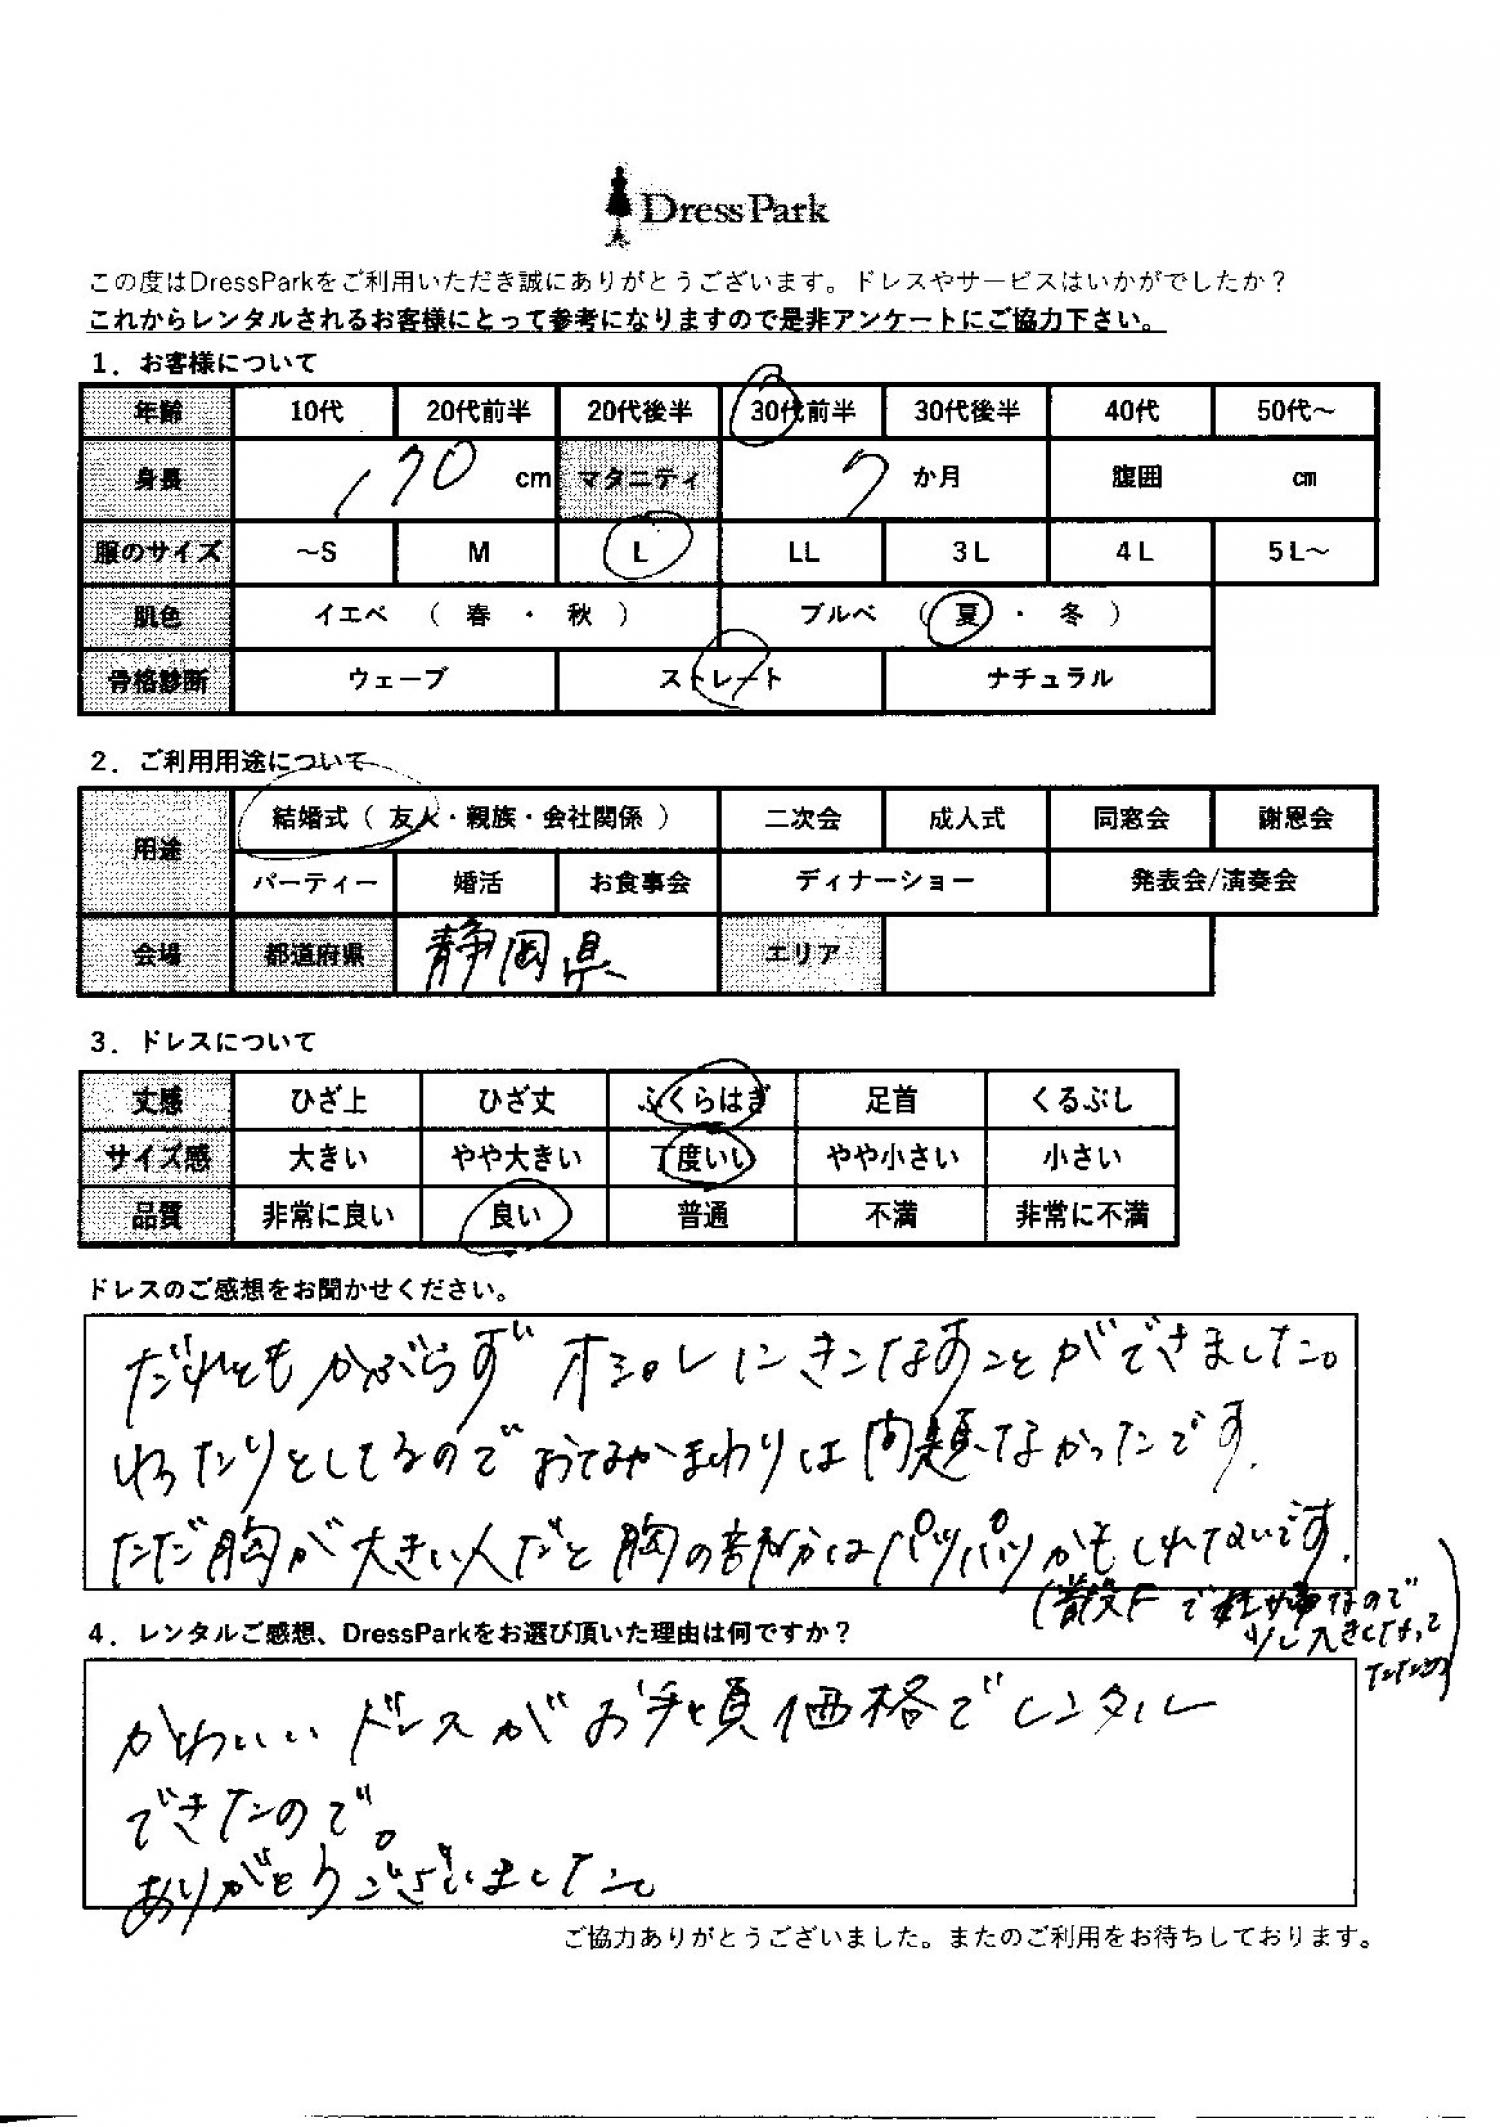 DressPark
この度はDressParkをご利用いただき誠にありがとうございます。ドレスやサービスはいかがでしたか？
これからレンタルされるお客様にとって参考になりますので是非アンケートにご協力下さい。
1．お客様について
年齢 10代 20代前半 20代後半 30代前半 30代後半 40代 50代～
身長 170 cm マタニティ 7 か月 腹囲 cm
服のサイズ ～S M L LL 3L 4L 5L～
肌色 イエベ （ 春 ・ 秋 ） ブルベ （ 夏 ・ 冬 ）
骨格診断 ウェーブ ストレート ナチュラル
2．ご利用用途について
用途 結婚式（ 友人・親族・会社関係 ） 二次会 成人式 同窓会 謝恩会
パーティー 婚活 お食事会 ディナーショー 発表会/演奏会
会場 都道府県 静岡県 エリア
3．ドレスについて
丈感 ひざ上 ひざ丈 ふくらはぎ 足首 くるぶし
サイズ感 大きい やや大きい 丁度いい やや小さい 小さい
品質 非常に良い 良い 普通 不満 非常に不満
ドレスのご感想をお聞かせください。
だれともかぶらず オシャレにきこなすことができました。
ゆったりとしてるので おなかまわりは問題なかったです。
ただ胸が大きい人だと胸の部分はパツパツかもしれないです。
(普段Fで妊娠中なので
少し大きくなって
たため)
4．レンタルご感想、DressParkをお選び頂いた理由は何ですか？
かわいい ドレスが お手頃価格でレンタル
できたので。
ありがとうございました。
ご協力ありがとうございました。またのご利用をお待ちしております。